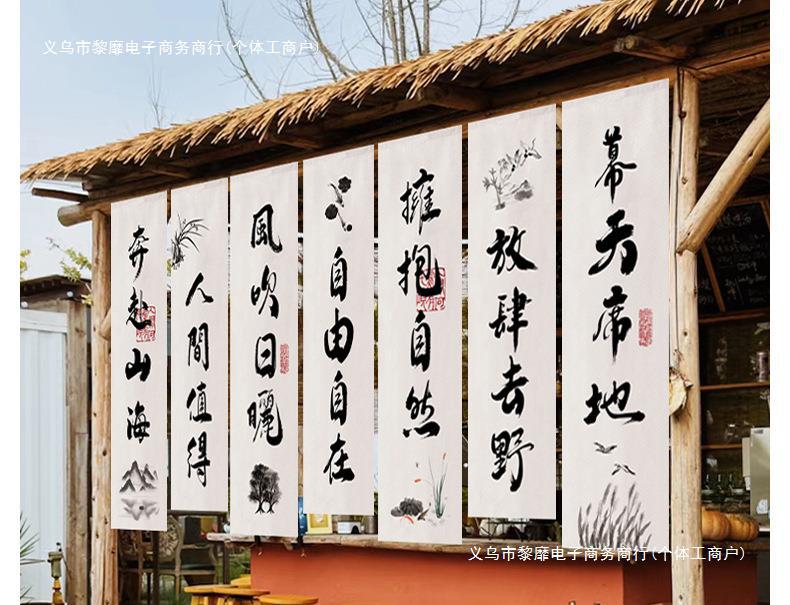 义乌市黎靡电子商务商行(个体工商户)
奔赴山海
人間值得
風吹日曬
自由自在
擁抱自然
放肆去野
幕天席地
义乌市黎靡电子商务商行(个体工商户)